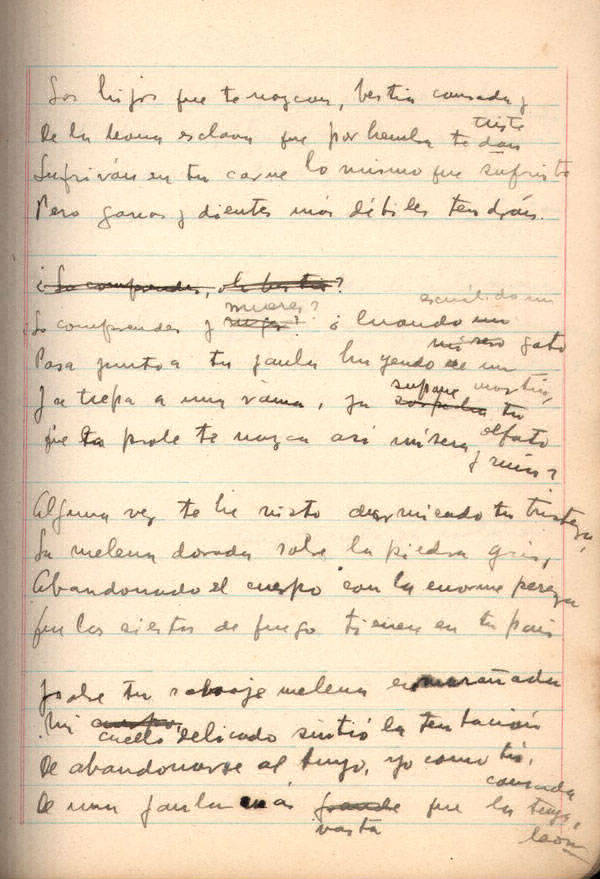 Los hijos que te nazcan, bestia cansada y
triste
De la leona esclava que por hembra te dan
Sufrirán en tu carne lo mismo que sufriste
Pero garras y dientes más débiles tendrán.
¿Lo comprendes, oh bestia?
mueres? escuálido un
Lo comprendes y ruges? ¿Cuando un
mísero gato
Pasa junto a tu jaula huyendo de un
mastín,
Ya trepa a una rama, ya sospecha tu
supone
olfato
que tu prole te nazca así mísera
y ruin?
Alguna vez te he visto durmiendo tu tristeza,
La melena dorada sobre la piedra gris,
Abandonado el cuerpo con la enorme pereza
Que las siestas de fuego tienen en tu país
Y sobre tu salvaje melena enmarañada
Mi cuello delicado sintió la tentación
De abandonarse al tuyo, yo como tú,
cansada
De una jaula más grande que la tuya,
vasta
león